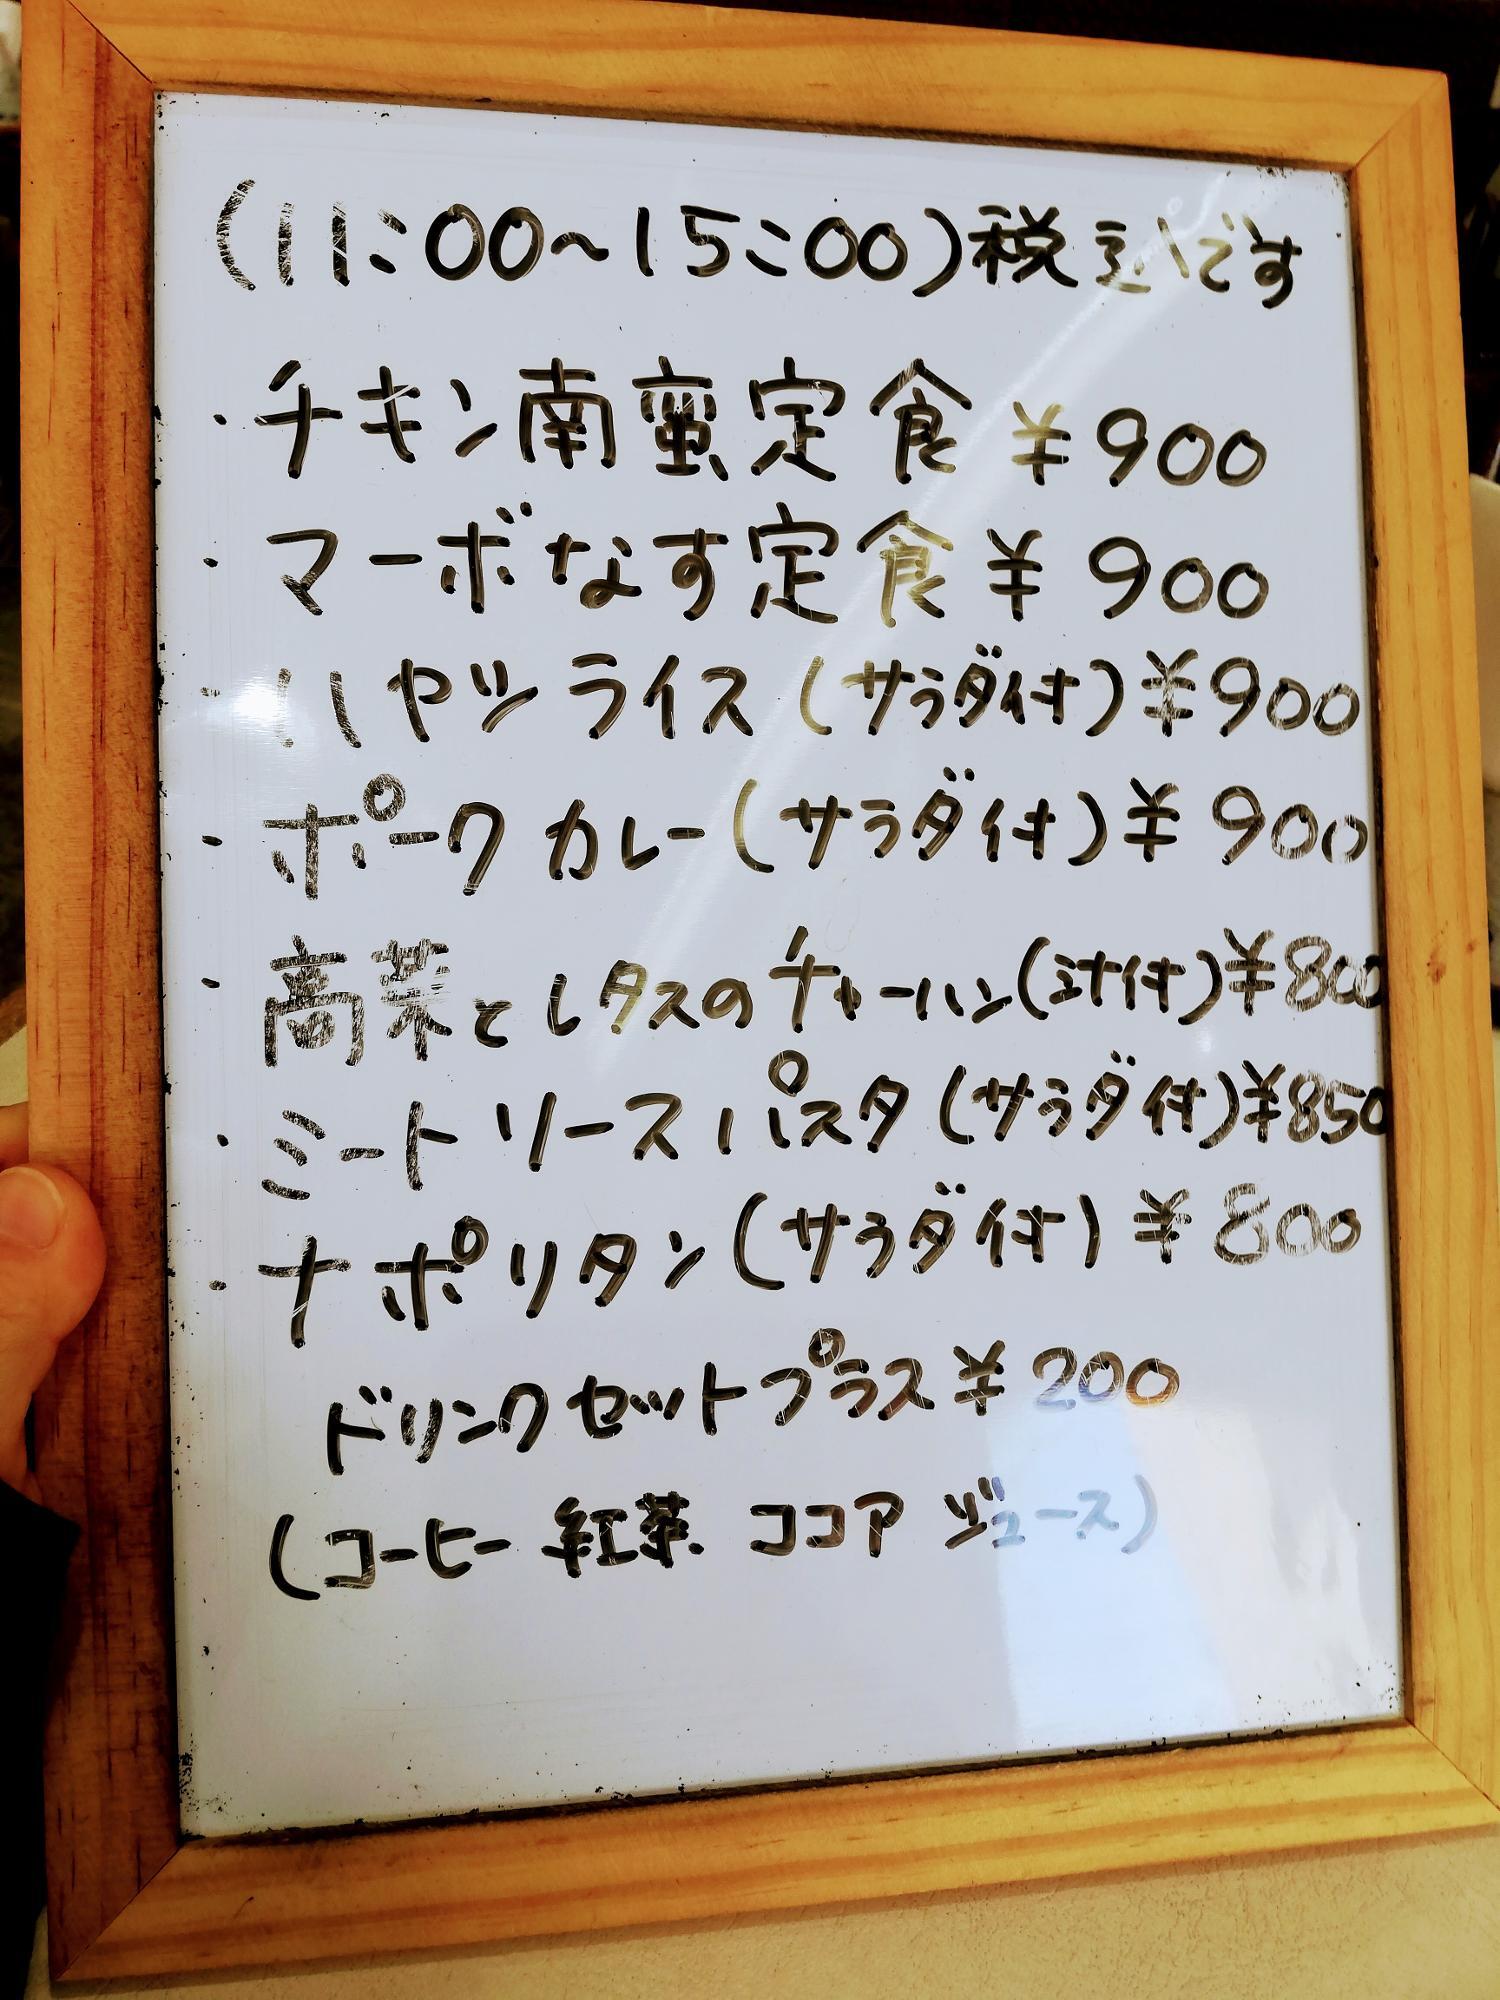 (11:00~15:00)税込です
・チキン南蛮定食 ¥900
・マーボなす定食 ¥900
・ハヤシライス(サラダ付)¥900
・ポークカレー(サラダ付)¥900
・高菜とレタスのチャーハン(汁付)¥800
・ミートソースパスタ(サラダ付)¥850
・ナポリタン(サラダ付)¥800
ドリンクセットプラス¥200
(コーヒー 紅茶 ココア ジュース)